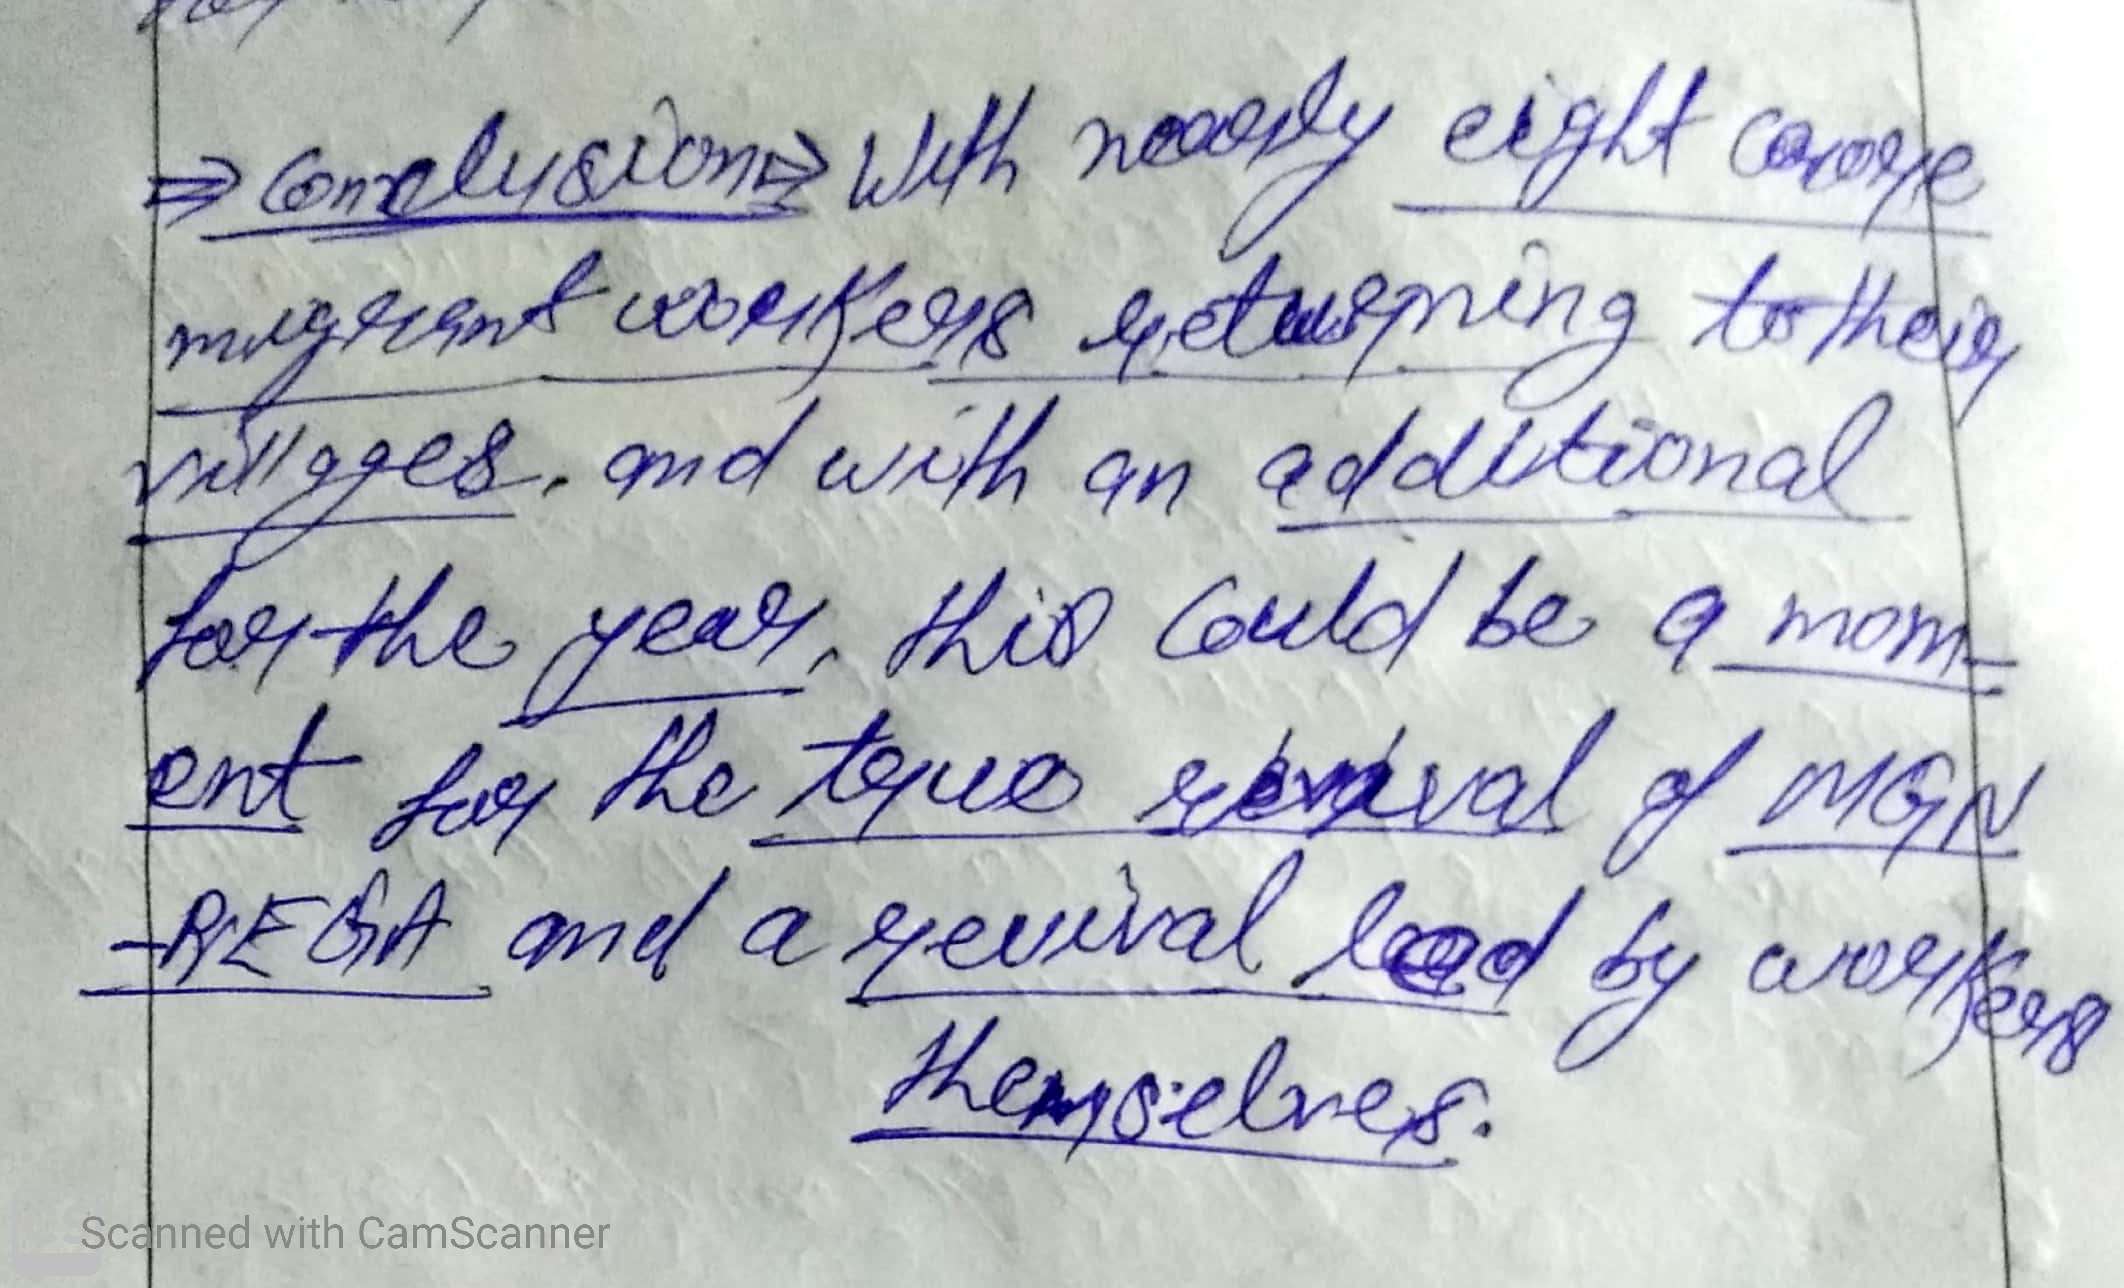 ⇒ Conclusion ⇒ With nearly eight crore
migrant workers returning to their
villages, and with an additional
for the year, this could be a mom-
ent for the true revival of MGN
-REGA and a revival lead by workers
themselves.
Scanned with CamScanner